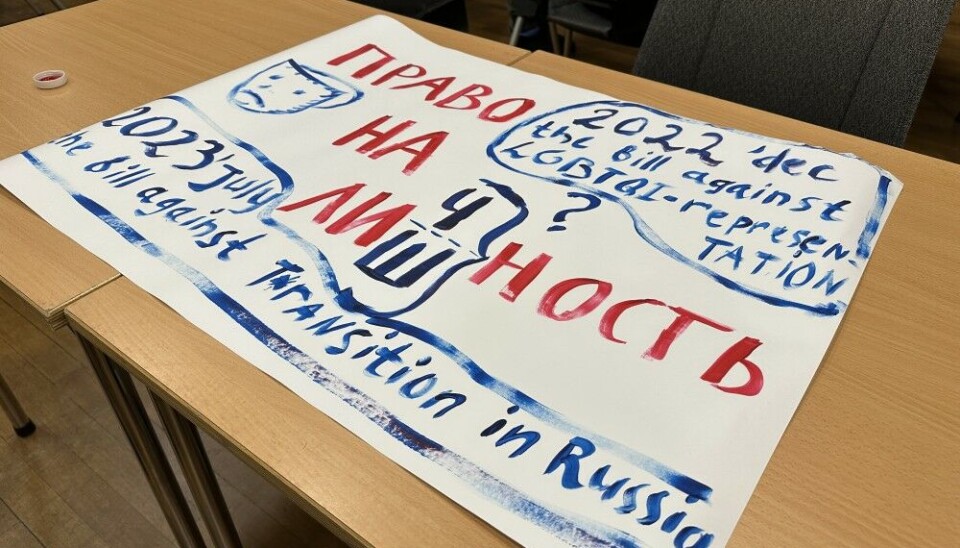 ПРАВО
НА
ЛИ
Ч
Ш
?
НОСТЬ
2022 'dec
the Bill against
LGBTQI-represen-
TATION
2023'July
the Bill against Transition in Russia